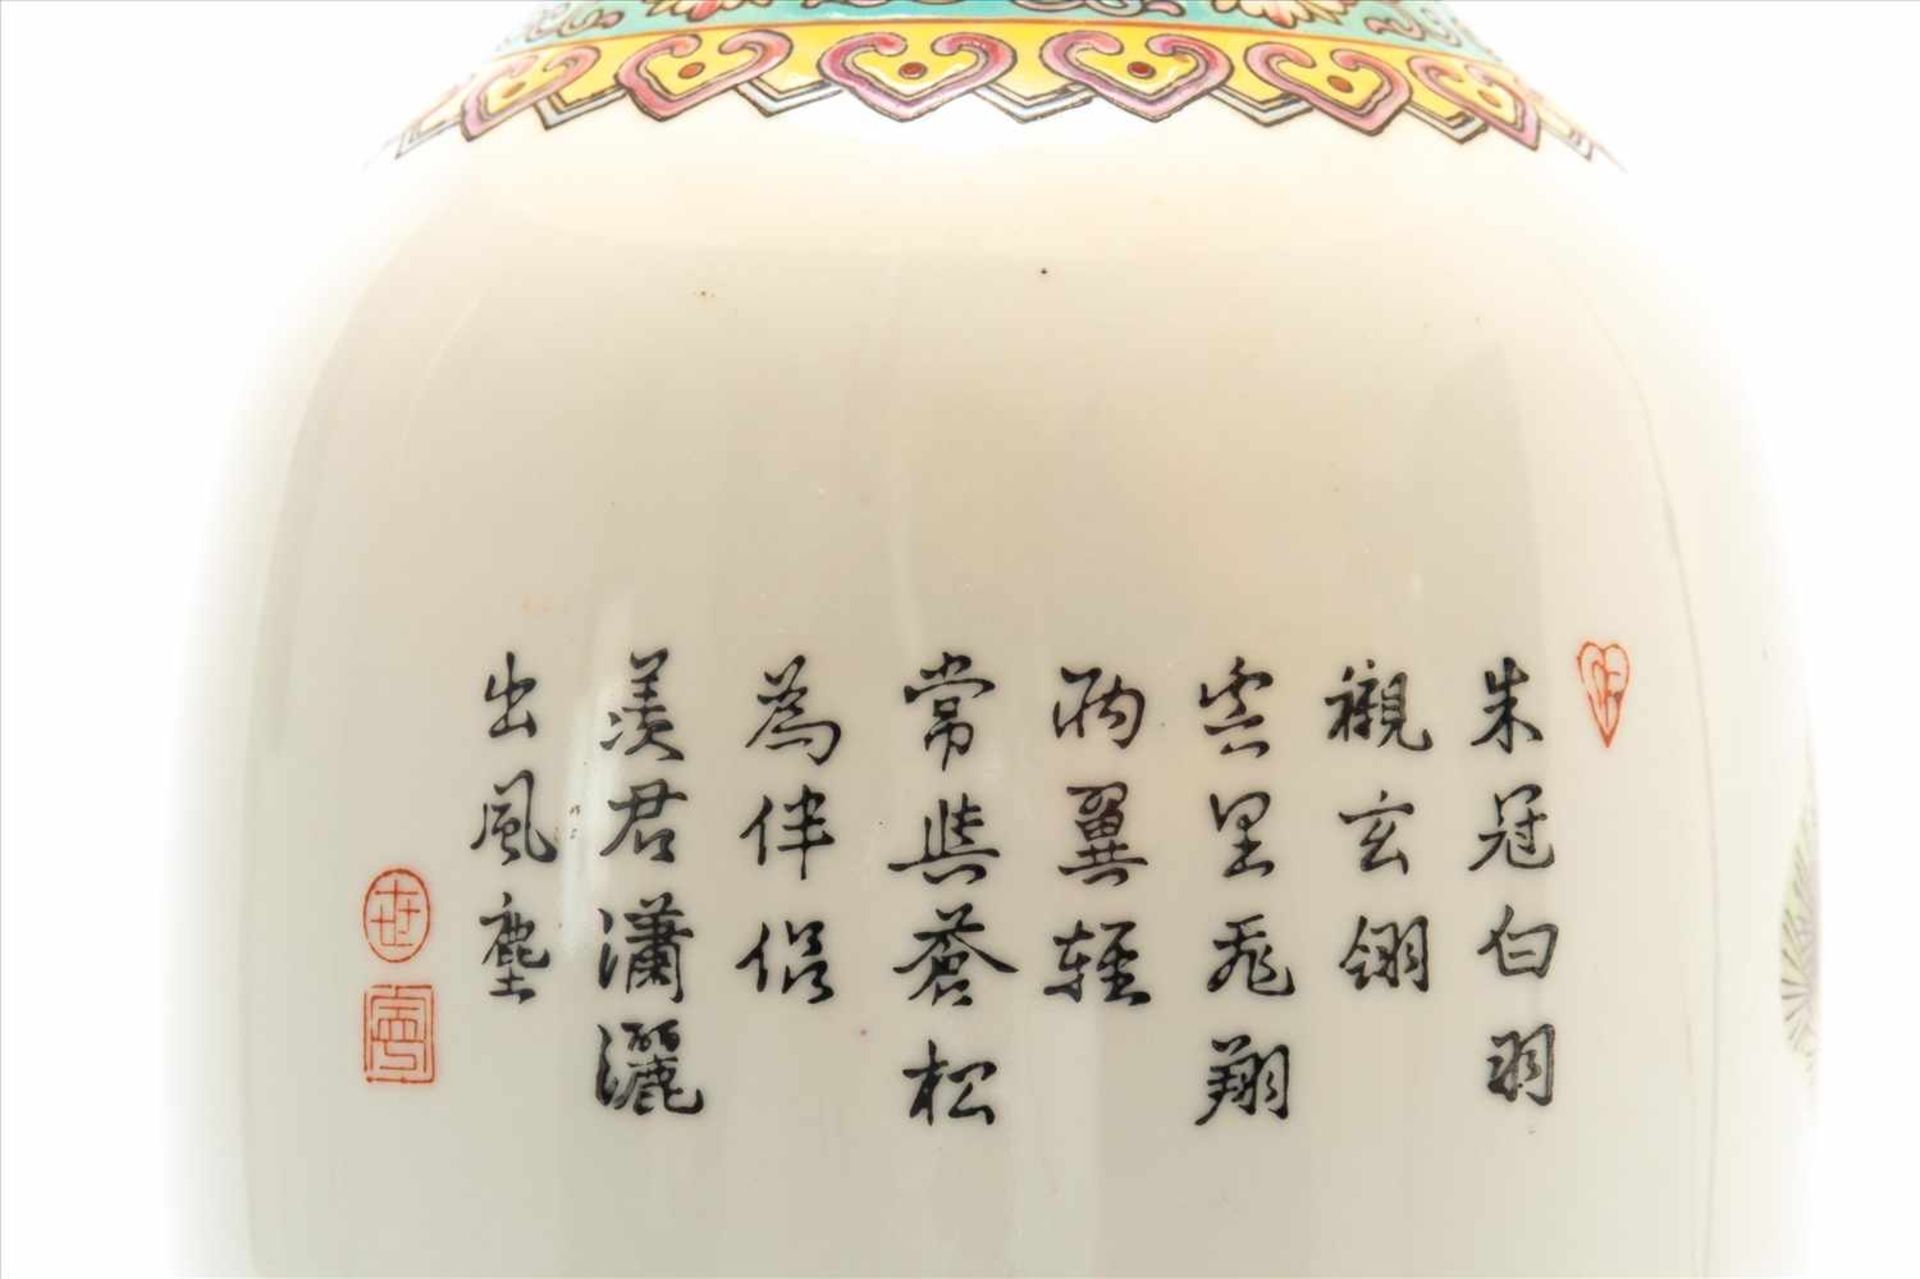 朱冠白羽
襯玄翎
雲里飛翔
兩翼輕
常與蒼松
為伴侶
羨君瀟灑
出風塵